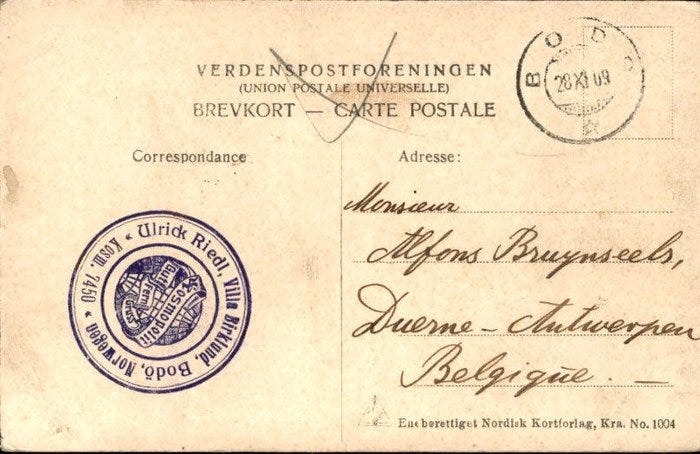 VERDENSPOSTFORENINGEN
(UNION POSTALE UNIVERSELLE)
BREVKORT — CARTE POSTALE
BODO
28 XI 09
Correspondance
Adresse:
Monsieur
Alfons Bruynseels,
Duerne - Antwerpen
Belgique. —
Ulrick Riedl, Villa Birklund, Bodö, Norwegen
Kosm: 7450
Kosmopolit
Eneberettiget Nordisk Kortforlag, Kra. No. 1004